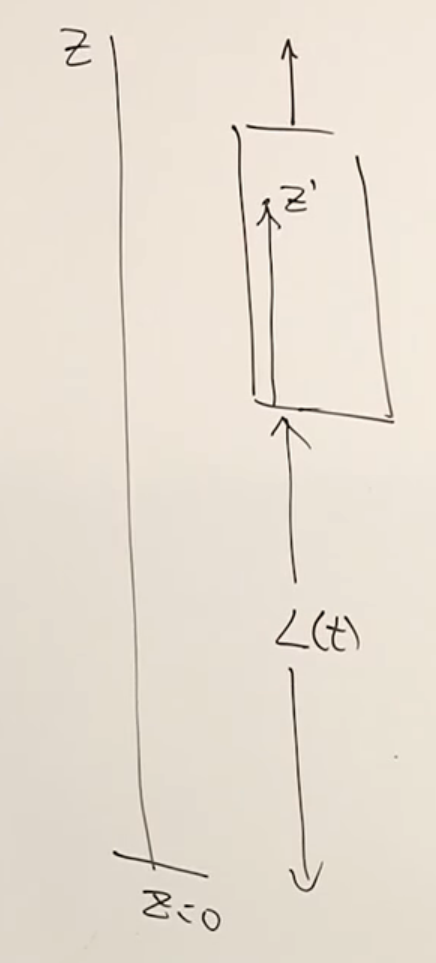 Z
Z'
L(t)
Z=0